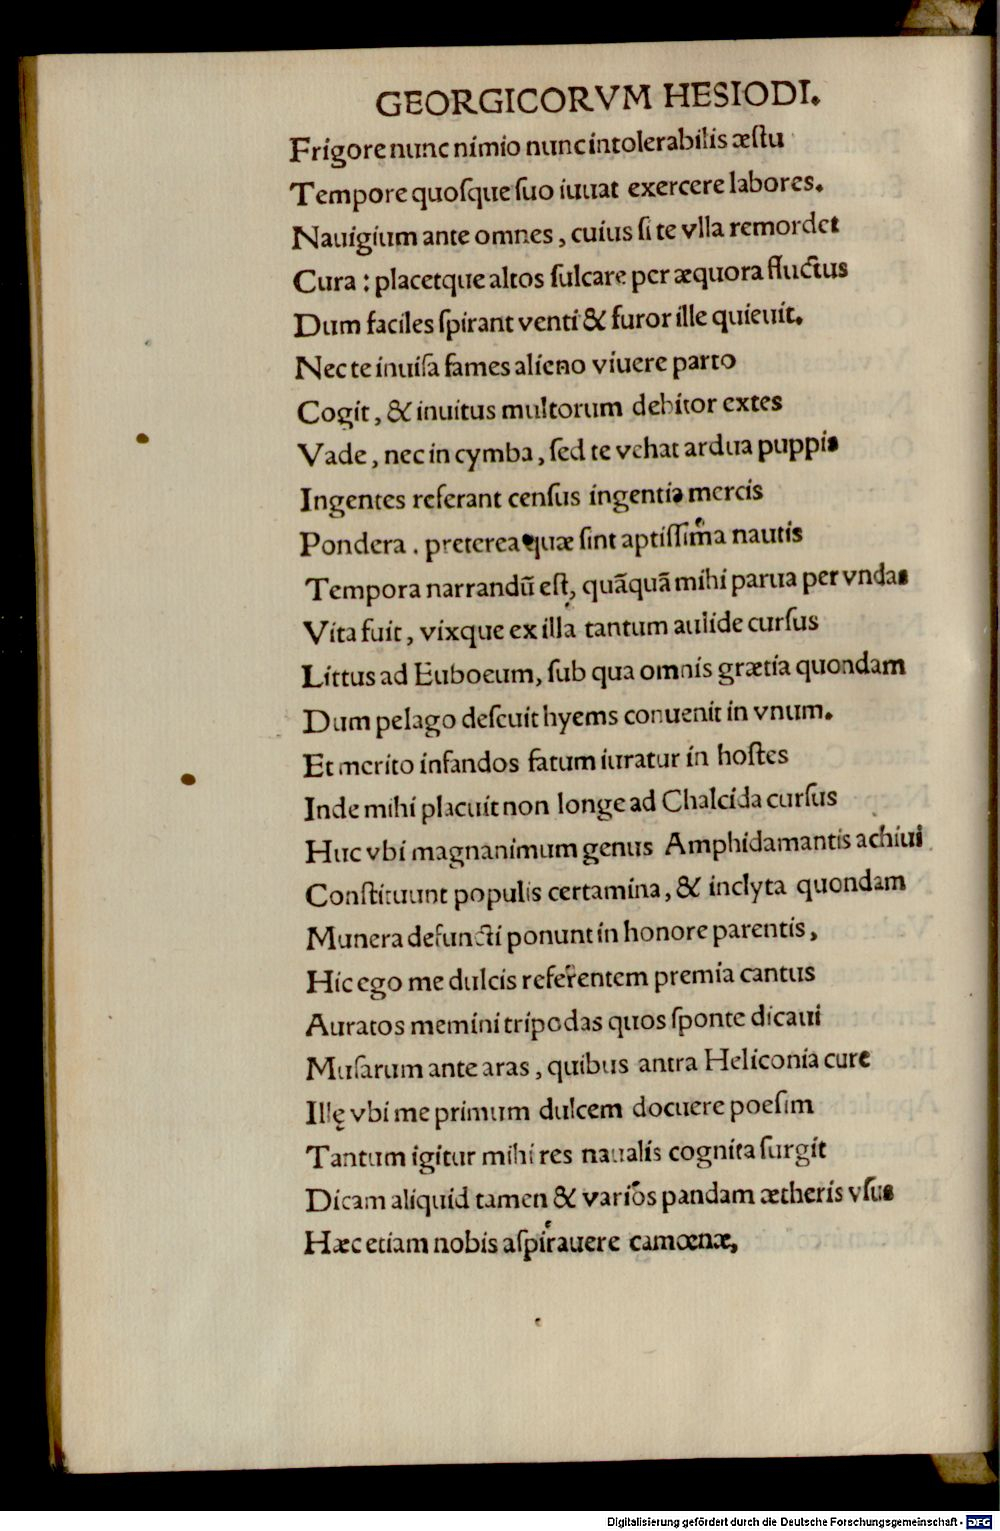 GEORGICORVM HESIODI.
Frigore nunc nimio nunc intolerabilis æſtu
Tempore quoſque ſuo iuuat exercere labores.
Nauigium ante omnes, cuius ſi te vlla remordet
Cura : placetque altos ſulcare per æquora fluctus
Dum faciles ſpirant venti & furor ille quieuit.
Nec te inuiſa fames alieno viuere parto
Cogit, & inuitus multorum debitor extes
Vade, nec in cymba, ſed te vehat ardua puppis
Ingentes referant cenſus ingentia mercis
Pondera . preterea quæ ſint aptiſſima nautis
Tempora narrandũ eſt, quãquã mihi parua per vndas
Vita fuit, vixque ex illa tantum aulide curſus
Littus ad Euboeum, ſub qua omnis grætia quondam
Dum pelago deſcuit hyems conuenit in vnum.
Et merito infandos fatum iuratur in hoſtes
Inde mihi placuit non longe ad Chalcida curſus
Huc vbi magnanimum genus Amphidamantis achiui
Conſtituunt populis certamina, & inclyta quondam
Munera defuncti ponunt in honore parentis,
Hic ego me dulcis referentem premia cantus
Auratos memini tripodas quos ſponte dicaui
Muſarum ante aras, quibus antra Heliconia cure
Illę vbi me primum dulcem docuere poeſim
Tantum igitur mihi res naualis cognita ſurgit
Dicam aliquid tamen & varios pandam ætheris vſus
Hæc etiam nobis aſpirauere camœnæ,
Digitalisierung gefördert durch die Deutsche Forschungsgemeinschaft - DFG